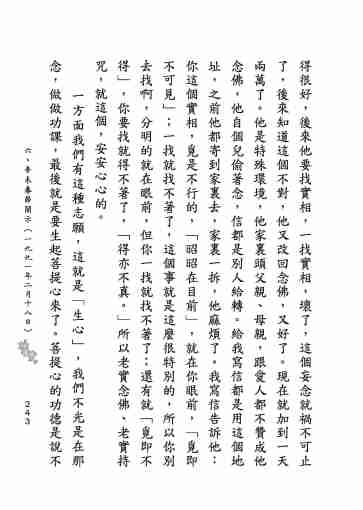 得很好，後來他要找實相，一找實相，壞了，這個妄念就禍不可止
了，後來知道這個不對，他又改回念佛，又好了。現在就加到一天
兩萬了。他是特殊環境，他家裏頭父親、母親，跟愛人都不贊成他
念佛。他自個兒偷著念，信都是別人給轉。給我寫信都是用這個地
址，之前他都寄到家裏去，家裏一拆，他麻煩了。我寫信告訴他：
你這個實相，覓是不行的，「昭昭在目前」，就在你眼前，「覓即
不可見」；一找就找不著了，這個事就是這麼很特別的，所以你別
去找啊，分明的就在眼前，但你一找就找不著了；還有就「覓即不
得」，你要找就得不著了，「得亦不真。」所以老實念佛、老實持
咒，就這個，安安心心的。
一方面我們有這種志願，這就是「生心」，我們不光是在那
念，做做功課，最後就是要生起菩提心來了。菩提心的功德是說不
六、辛未春節開示（一九九一年二月十八日）
243